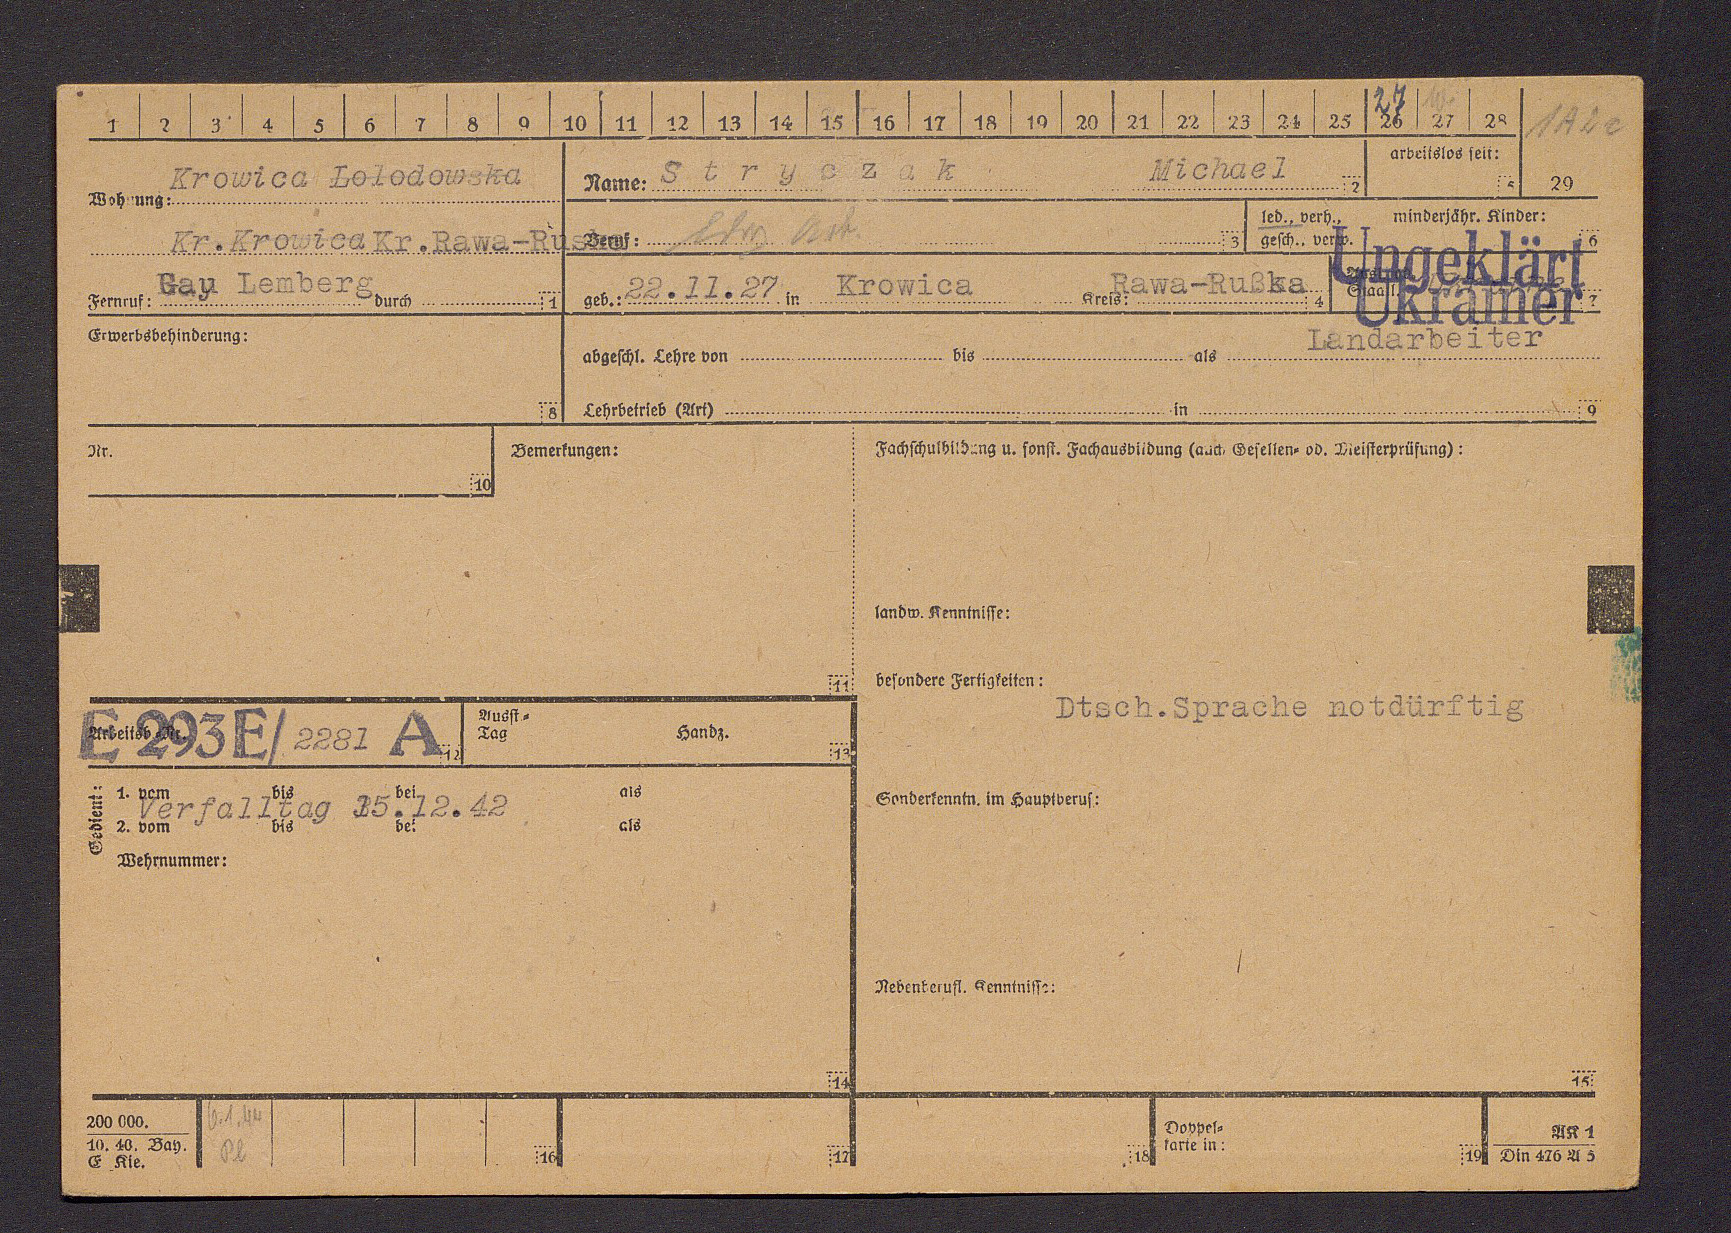 1 2 3 4 5 6 7 8 9 10 11 12 13 14 15 16 17 18 19 20 21 22 23 24 25 26 27 28
27
1A2e
arbeitslos seit:
5 29
Wohnung: Krowica Lolodowska
Name: Stryczak Michael 2
Kr.Krowica Kr.Rawa-Ruska
Beruf: 3
led., verh., gesch., verw.
minderjähr. Kinder:
6
Ungeklärt
Ukrainer
Fernruf: Gay Lemberg durch 1
geb.: 22.11.27 in Krowica Kreis: Rawa-Rußka 4
Staat 7
Erwerbsbehinderung:
8
Landarbeiter
abgeschl. Lehre von bis als
Lehrbetrieb (Art) in 9
Nr.
10
Bemerkungen:
11
Fachschulbildung u. sonst. Fachausbildung (auch Gesellen- od. Meisterprüfung):
landw. Kenntnisse:
besondere Fertigkeiten:
Dtsch.Sprache notdürftig
Arbeitsb. Nr. E 293 E/ 2281 A 12
Ausst=
Tag
Handz.
13
Gedient:
1. vom bis bei als
Verfalltag 15.12.42
2. vom bis bei als
Wehrnummer:
Sonderkenntn. im Hauptberuf:
Nebenberufl. Kenntnisse:
14 15
200 000.
10. 40. Bay.
E Kie.
6.1.44
16 17 18
Doppel=
karte in:
19
AK 1
Din 476 A 5